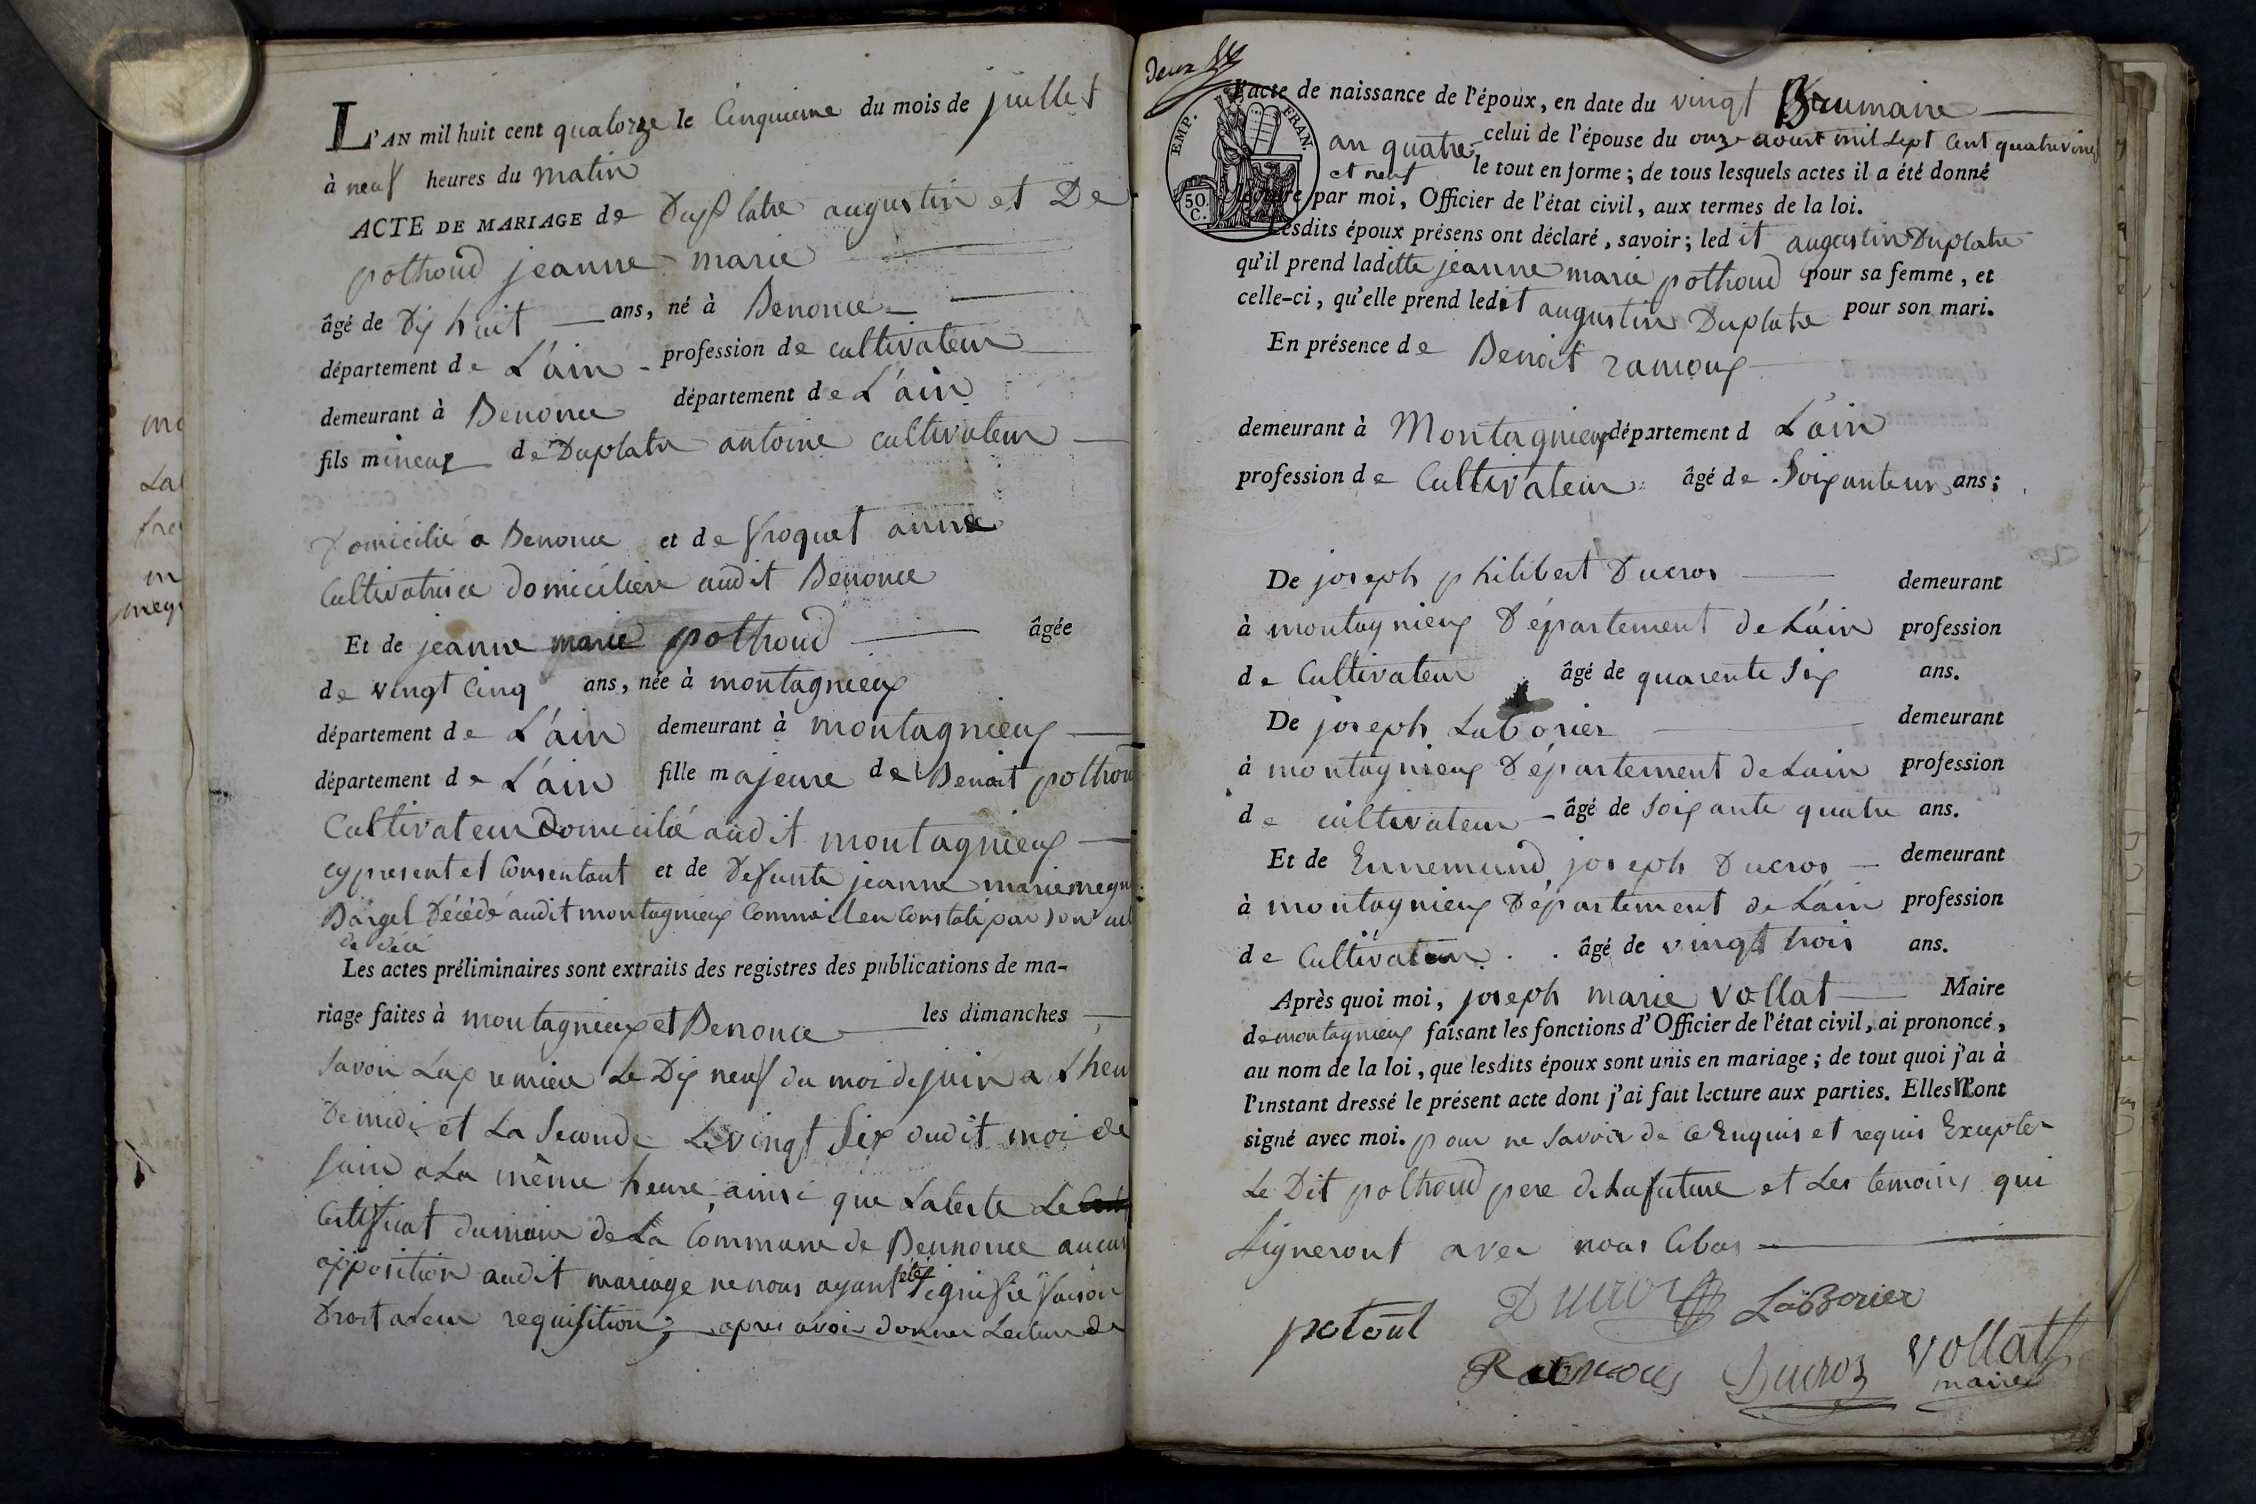 L'AN mil huit cent quatorze le Cinquieme du mois de juillet
à neuf heures du matin
ACTE DE MARIAGE de Duplatre augustin et De
pothoud jeanne marie
âgé de Dix huit ans, né à Benonce
département de L'ain profession de cultivateur
demeurant à Benonce département de L'ain
fils mineur de Duplatre antoine cultivateur
Domicilié a Benonce et de froquet anne
Cultivatrice domiciliere audit Benonce
Et de jeanne marie pothoud âgée
de vingt Cinq ans, née à montagnieux
département de L'ain demeurant à montagnieux
département de L'ain fille majeure de Benoit pothoud
Cultivateur Domicilié audit montagnieux
cy present et Consentant et de Defunte jeanne marie
Décédé audit montagnieux Comme il en Constate par son
de décé
Les actes préliminaires sont extraits des registres des publications de ma-
riage faites à montagnieux et Benonce les dimanches
Savoir La premiere Le Dix neuf du moi de juin a
De midi et La Seconde Le vingt Six dudit moi de
juin a La même heure, ainsi que Lateste Le
Certificat du maire de La Commune de Bennonce aucun
opposition audit mariage ne nous ayant été Signifie faison
Droit a Leur requisition; apres avoir donner Lecture de
Deux
EMP. FRAN.
50. C.
l'acte de naissance de l'époux, en date du vingt Brumaire
an quatre celui de l'épouse du onze aoust mil sept Cent quatrevingt
et neuf le tout en forme; de tous lesquels actes il a été donné
lecture par moi, Officier de l'état civil, aux termes de la loi.
Lesdits époux présens ont déclaré, savoir; ledit augustin Duplatre
qu'il prend laditte jeanne marie pothoud pour sa femme, et
celle-ci, qu'elle prend ledit augustin Duplatre pour son mari.
En présence de Benoit ramoux
demeurant à Montagnieux département d L'ain
profession de Cultivateur âgé de Soixante un ans;
De joseph philibert Ducros demeurant
à montagnieux Département de L'ain profession
de Cultivateur âgé de quarente Six ans.
De joseph Laborier demeurant
à montagnieux Département de Lain profession
de cultivateur âgé de Soixante quatre ans.
Et de Ennemund joseph Ducros demeurant
à montagnieux Département de L'ain profession
de Cultivateur âgé de vingt trois ans.
Après quoi moi, joseph marie Vollat Maire
de montagnieux faisant les fonctions d'Officier de l'état civil, ai prononcé,
au nom de la loi, que lesdits époux sont unis en mariage; de tout quoi j'ai à
l'instant dressé le présent acte dont j'ai fait lecture aux parties. Elles N'ont
signé avec moi. pour ne Savoir de Ce Enquis et requis Excepter
Le Dit pothoud pere de La future et Les temoins qui
Signeront avec nous Cibas
Ducros LaBorier
potoud
Ramous Ducros Vollat
maire